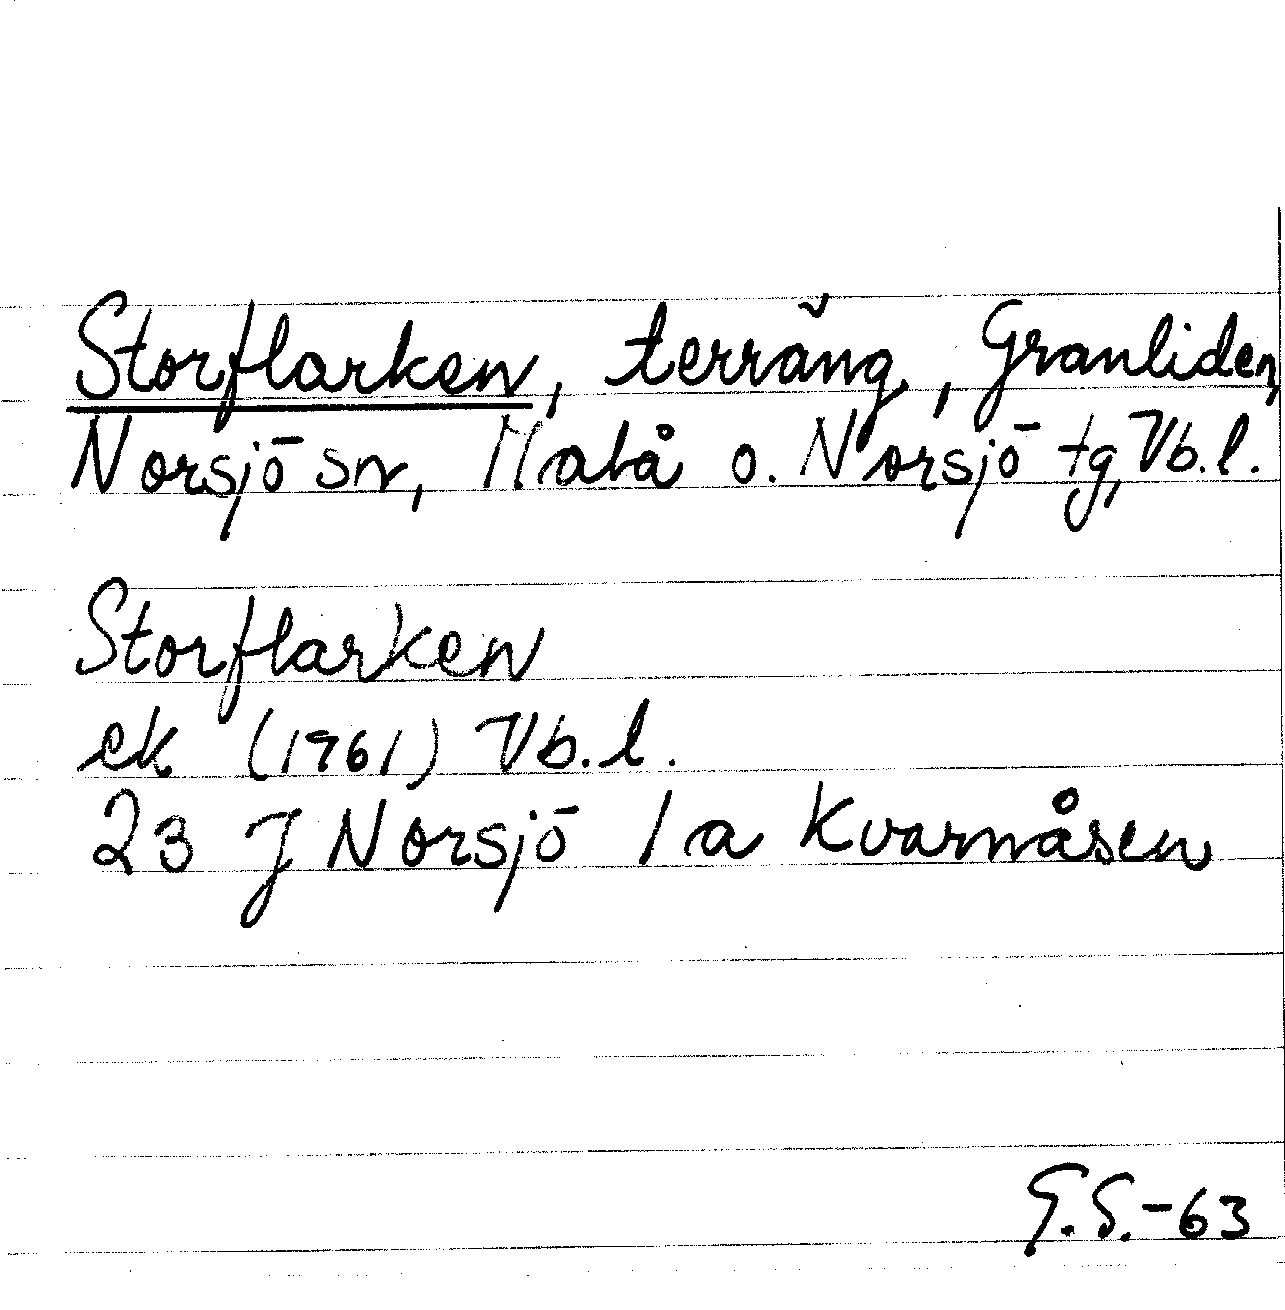 Storflarken, terräng, Granliden,
Norsjö sn, Malå o. Norsjö tg, Vb.l.
Storflarken
ek (1961) Vb.l.
23 J Norsjö 1a Kvarnåsen
G.S.-63